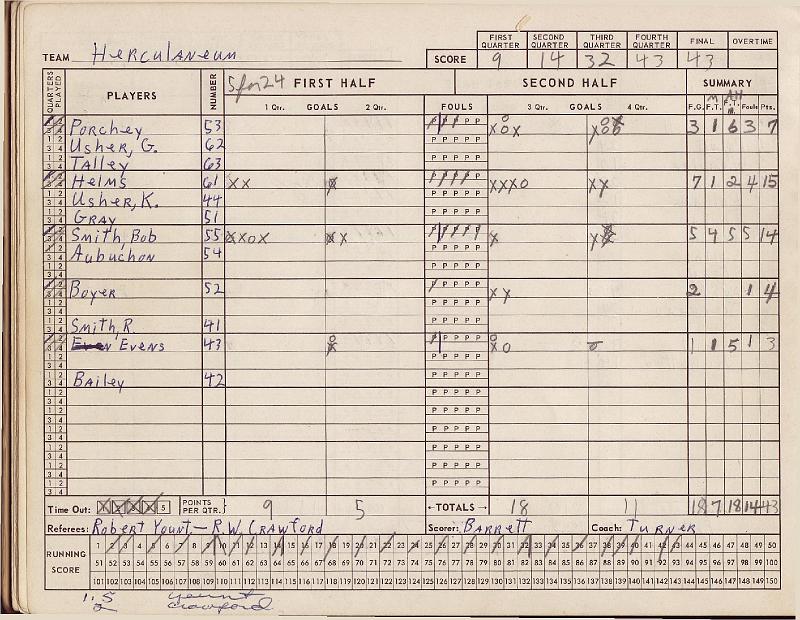 FIRST QUARTER SECOND QUARTER THIRD QUARTER FOURTH QUARTER FINAL OVERTIME
TEAM Herculaneum SCORE 9 14 32 43 43
QUARTERS PLAYED PLAYERS NUMBER 5 for 24 FIRST HALF SECOND HALF SUMMARY
1 Qtr. GOALS 2 Qtr. FOULS 3 Qtr. GOALS 4 Qtr. F.G. M F.T. Att F.T. M. Fouls Pts.
Porchey 53 3 1 6 3 7
Usher, G. 62
Talley 63
Helms 61 7 1 2 4 15
Usher, K. 44
Gray 51
Smith, Bob 55 5 4 5 5 14
Aubuchon 54
Boyer 52 2 1 4
Smith, R. 41
Evens 43 1 1 5 1 3
Bailey 42
Time Out: 5 POINTS PER QTR. 9 5 ←TOTALS→ 18 11 18 7 18 14 43
Referees: Robert Yount - R.W. Crawford Scorer: Barrett Coach: Turner
RUNNING SCORE
1 2 3 4 5 6 7 8 9 10 11 12 13 14 15 16 17 18 19 20 21 22 23 24 25 26 27 28 29 30 31 32 33 34 35 36 37 38 39 40 41 42 43 44 45 46 47 48 49 50
51 52 53 54 55 56 57 58 59 60 61 62 63 64 65 66 67 68 69 70 71 72 73 74 75 76 77 78 79 80 81 82 83 84 85 86 87 88 89 90 91 92 93 94 95 96 97 98 99 100
101 102 103 104 105 106 107 108 109 110 111 112 113 114 115 116 117 118 119 120 121 122 123 124 125 126 127 128 129 130 131 132 133 134 135 136 137 138 139 140 141 142 143 144 145 146 147 148 149 150
1.5 Yount
2 Crawford